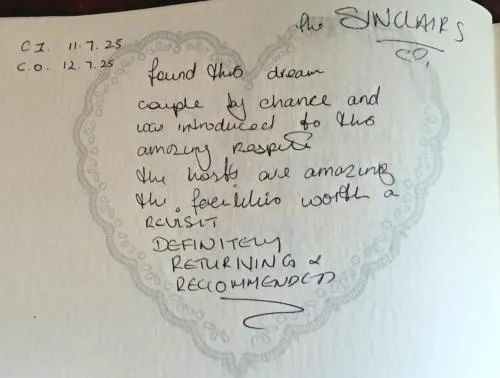 C.I. 11.7.25
C.O. 12.7.25
The SINCLAIRS
CO.
found this dream
couple by chance and
was introduced to this
amazing respite
the hosts are amazing
the facilities worth a
REVISIT
DEFINITELY
RETURNING &
RECOMMENDED